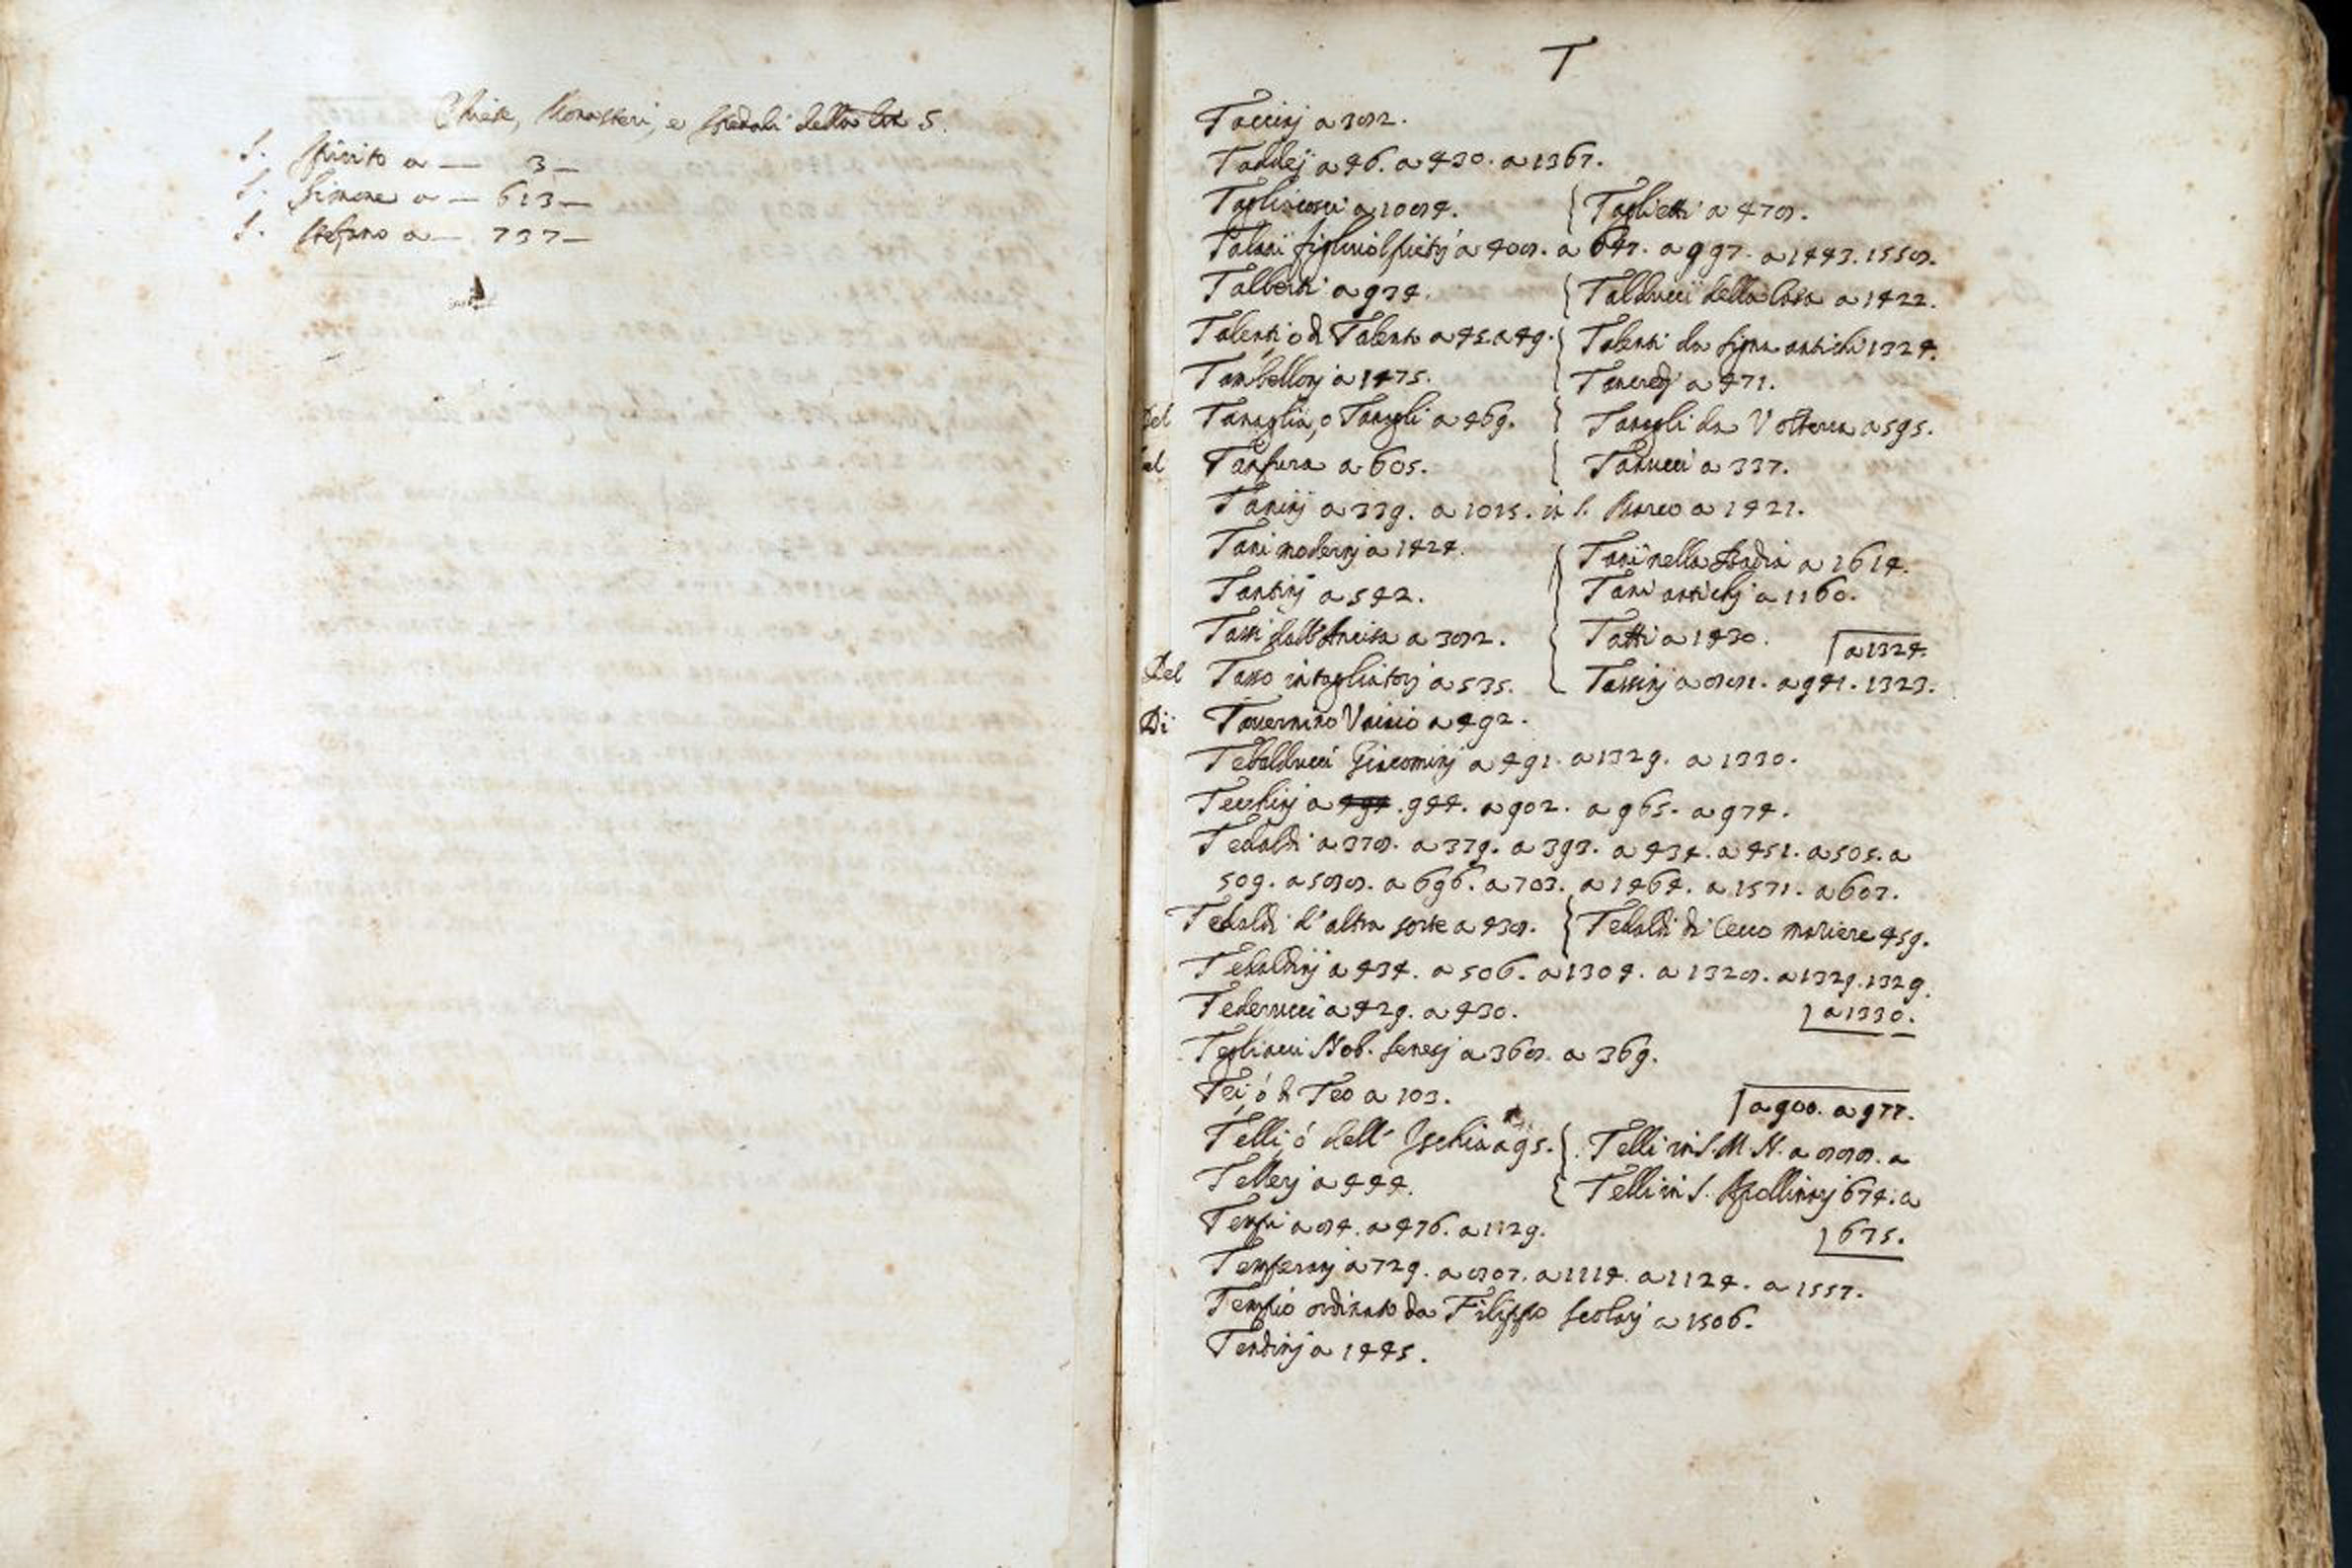 Chiese, Monasteri, e Spedali della let S.
S. Spirito a — 3 —
S. Simone a — 613 —
S. Stefano a — 737 —
T
Taccinj a 382.
Taddej a 46. a 430. a 1367.
a 1084. { Taglietti a 478.
a 408. a 647. a 997. a 1443. 1558.
Talberti a 934. { Talducci della Casa a 1422.
Talenti ò di Talento a 45 a 49. { Talenti da Signa antichi 1324.
Tambellonj a 1475. { Tancredj a 471.
Del Tanaglia, o Tanagli a 469. { Tanagli da Volterra a 595.
Del Tanfura a 605. { Tanucci a 337.
Taninj a 339. a 1015. in S. Marco a 1421.
Tani modernj a 1424. { Tani nella Badia a 1614.
Tantinj a 542. { Tani antichj a 1160.
Tassi dall'Ancisa a 382. { Tatti a 1430. a 1324.
Del Tasso intagliatorj a 535. { Tassinj a 881. a 941. 1323.
Di Tavernino Vaiaio a 492.
Tebalducci Giacominj a 491. a 1329. a 1330.
Tecchinj a 494 . 944. a 902. a 965. a 974.
Tedaldi a 378. a 379. a 393. a 434. a 451. a 505. a
509. a 588. a 696. a 703. a 1464. a 1571. a 607.
Tedaldi d'altra sorte a 438. { Tedaldi di Cecco 459.
Tedaldinj a 434. a 506. a 1304. a 1328. a 1329. 1329.
Tederucci a 429. a 430. a 1330.
Tegliacci Nob. Senesj a 368. a 369.
Tei, ò di Teo a 103. a 900. a 977.
Telli, ò dell' Ischia a 95. { Telli in S. M. N. a 888. a
Tellerj a 444. { Telli in S. Apollinarj 674. a
Tempi a 84. a 476. a 1129. 675.
Temperanj a 729. a 807. a 1114. a 1124. a 1557.
Tempio ordinato da Filippo Scolarj a 1506.
Tendinj a 1445.